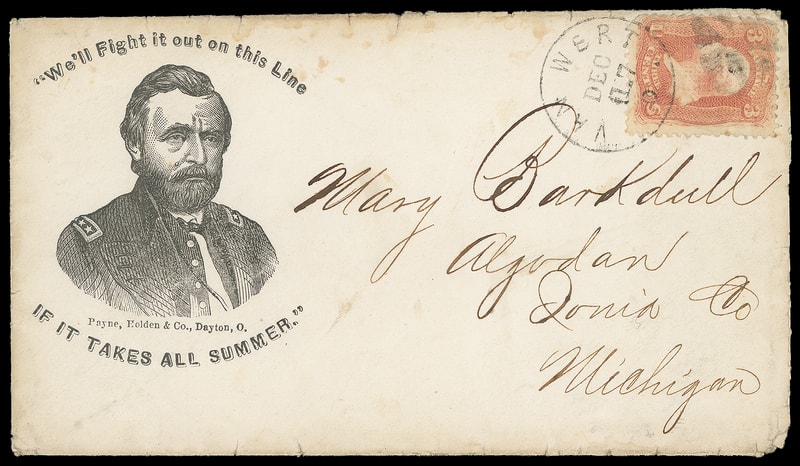 "We'll Fight it out on this Line
Payne, Holden & Co., Dayton, O.
IF IT TAKES ALL SUMMER."
VAN WERT O
DEC
17
3 3
U S
Mary Barkdull
Algodan
Ionia Co
Michigan